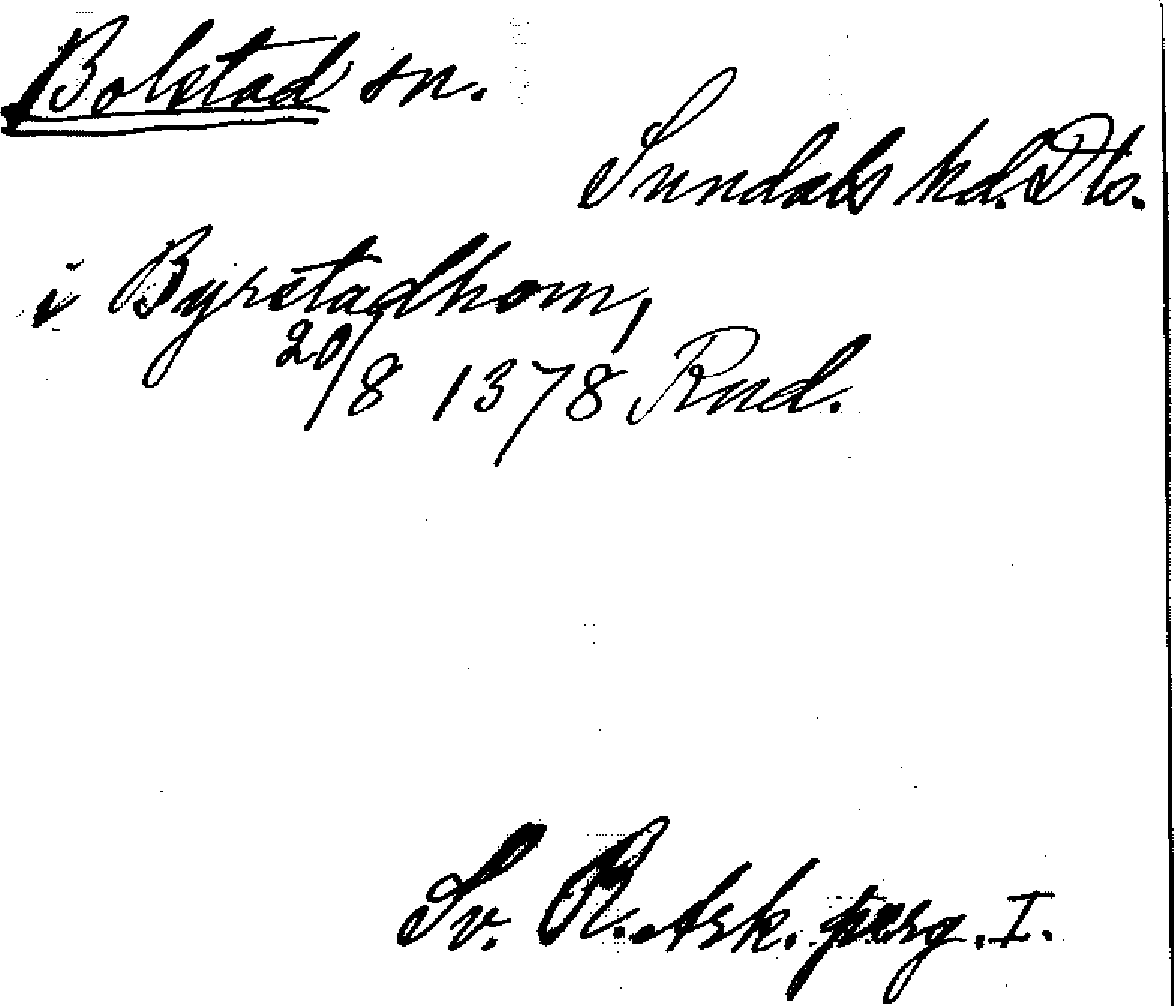 Bolstad sn.
Sundals hd. Dls.
i Byrstadhom,
20/8 1378 Rud.
Sv. R. Ark. perg. I.